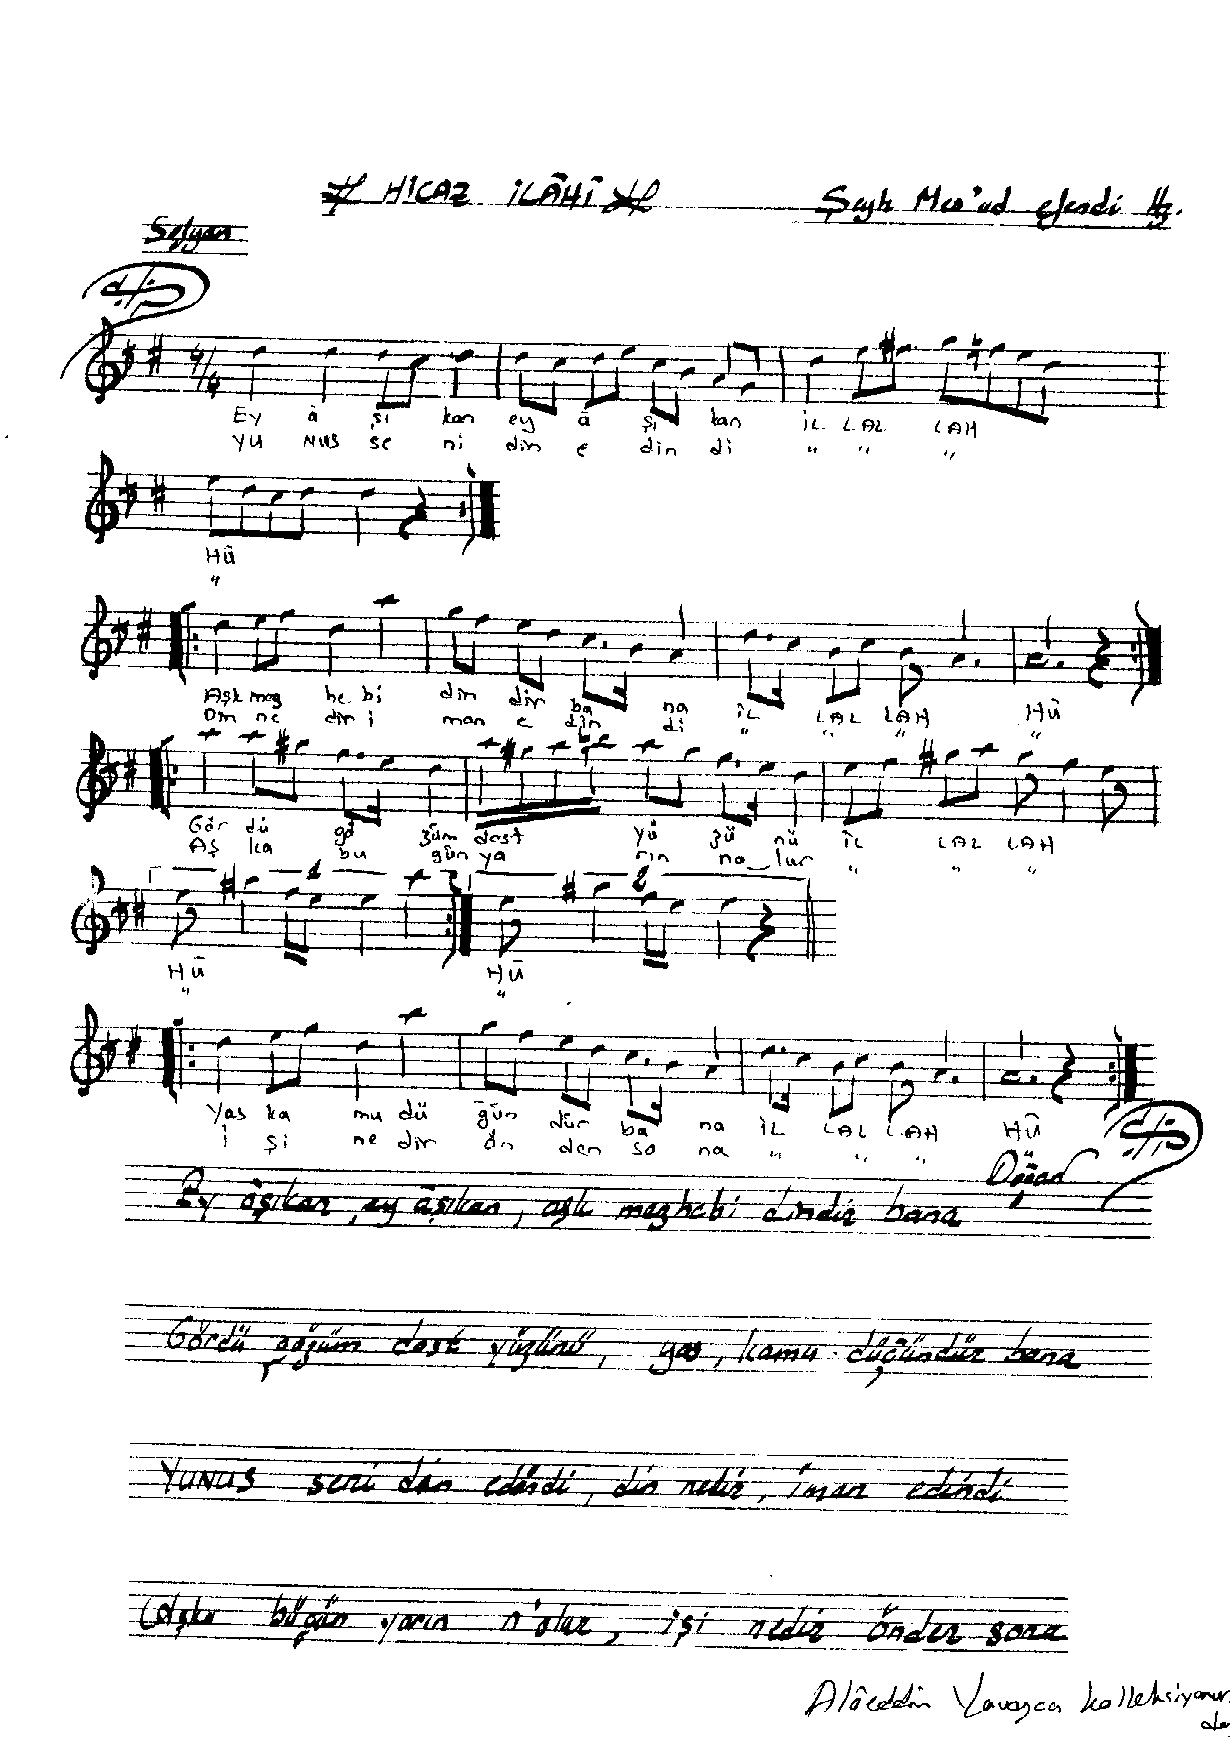 HİCAZ İLÂHÎ Şeyh Mes'ud efendi Hz.
Sofyan
4/4
Ey â şı kan ey â şı kan İL LAL LAH
YU NUS se ni din e din di " " "
HÛ
"
Aşk mez he bi din dir ba na İL LAL LAH HÛ
Din ne dir i man e din di " " " "
Gör dü gö züm dost yü zü nü İL LAL LAH
Aş ka bu gün ya rın no lur " " "
1 2
HÛ HÛ
" "
Yas ka mu dü ğün dür ba na İL LAL LAH HÛ
İ şi ne dir ön den so na " " "
Doğan
Ey âşıkan, ey âşıkan, aşk mezhebi dindir bana
Gördü gözüm dost yüzünü, yas, kamu düğündür bana
YUNUS seni din edindi, din nedir, îman edindi
Aşka bugün yarın n'olur, işi nedir önden sona
Alâeddin Yavaşca kolleksiyonun